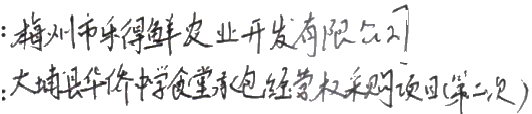 ：梅州市乐得鲜农业开发有限公司
：大埔县华侨中学食堂承包经营权采购项目（第二次）